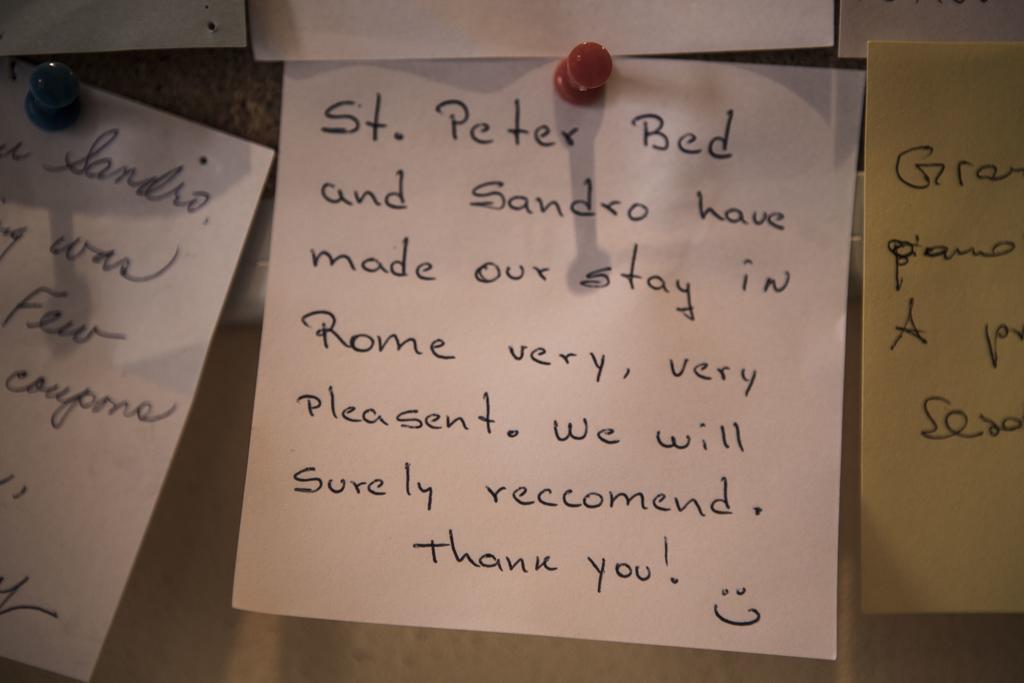 Sandro,
was
Few
coupons
St. Peter Bed
and Sandro have
made our stay in
Rome very, very
pleasent. We will
surely reccomend.
Thank you!
A